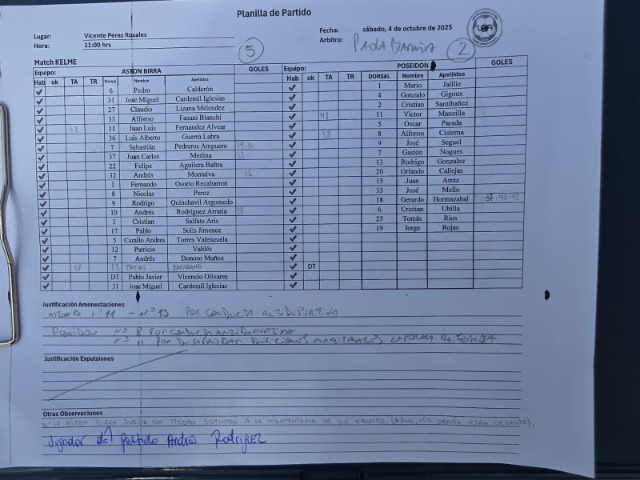 Planilla de Partido
Lugar: Vicente Perez Rosales Fecha: sábado, 4 de octubre de 2025
Hora: 11:00 hrs Arbitro:
Match KELME 5 2
Equipo: ASTON BIRRA GOLES Equipo: POSEIDON GOLES
Hab ok TA TR Dorsal Nombre Apellidos Hab ok TA TR DORSAL Nombre Apellidos
6 Pedro Calderón 1 Mario Jalilie
31 Jose Miguel Cardemil Iglesias 4 Gonzalo Gigoux
27 Claudio Lizana Melendez 2 Cristian Santibañez
33 Alfonso Fasani Bianchi 11 Victor Mancilla
11 Juan Luis Fernandez Alvear 5 Oscar Parada
36 Luis Alberto Guerra Labra 8 Alfonso Cisterna
9 Sebastián Pedreros Ampuero 9 José Seguel
37 Juan Carlos Medina 7 Gastón Nogues
22 Felipe Aguilera Baltra 13 Rodrigo Gonzalez
32 Andrés Montalva 16 20 Orlando Callejas
1 Fernando Osorio Recabarren 15 Juan
8 Nicolas Perez 33 José Mello
9 Rodrigo Quinchavil Argomedo 18 Gerardo Hormazabal
10 Andrés Rodriguez Arratia 6 Cristian Ubilla
3 Cristian Salfate Aris 25 Tomás Ríos
17 Pablo Solis Jimenez 19 Jorge Rojas
5 Camilo Andres Torres Valenzuela
12 Patricio Valdés
7 Andrés Donoso Muñoz
13 DT
DT Pablo Javier Vicencio Olivares
31 Jose Miguel Cardemil Iglesias
Justificación Amonestaciones
N° 11 - N° 13 POR CONDUCTA ANTIDEPORTIVA
Poseidon N° 8 POR CONDUCTA ANTIDEPORTIVA
N° 11 POR
Justificación Expulsiones
Otras Observaciones
N° 10 ASTON BIRRA JUEGA CON MEDIAS DISTINTAS A LA INDUMENTARIA DE SU EQUIPO
Jugador del partido Andres Rodriguez